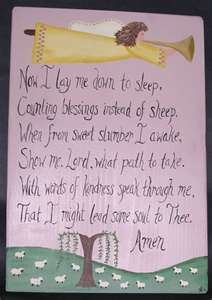 Now I lay me down to sleep,
Counting blessings instead of sheep.
When from sweet slumber I awake,
Show me, Lord, what path to take.
With words of kindness speak through me,
That I might lead some soul to Thee.
Amen